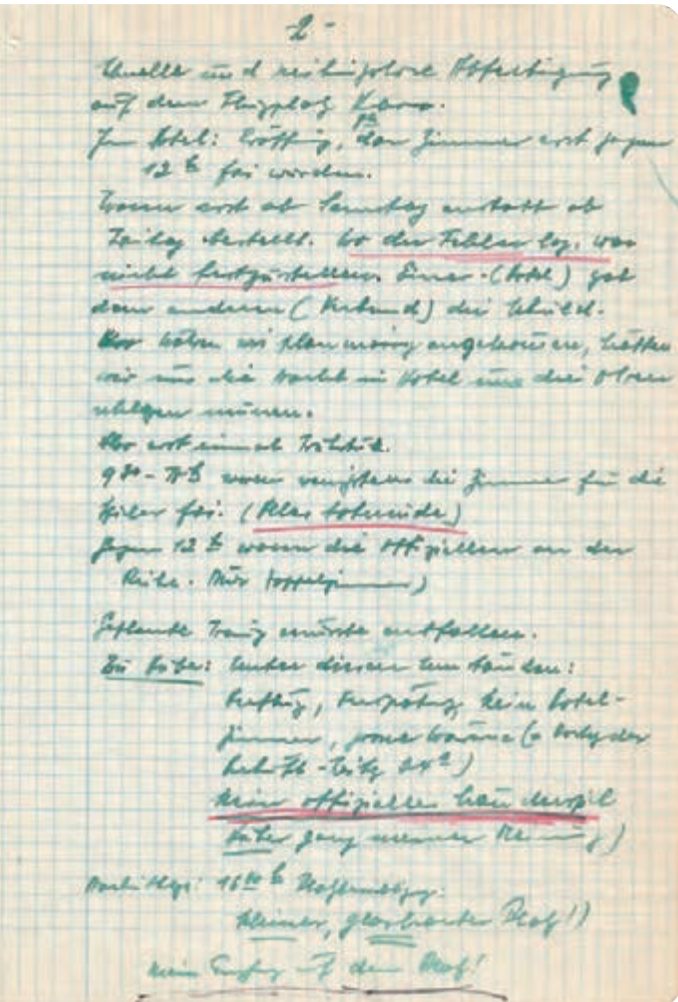 -2-
Schnelle und reibungslose Abfertigung
auf dem Flugplatz Kairo.
Im Hotel: daß Zimmer erst gegen
12 h frei würden.
Waren erst ab Samstag anstatt ab
Freitag bestellt. Wo der Fehler lag, war
nicht festzustellen. Einer (Hotel) gab
dem anderen (Verband) die Schuld.
wir planmäßig angekommen, hätten
wir uns die Nacht im Hotel um die Ohren
schlagen müssen.
Also erst einmal Frühstück.
9 30 - waren wenigstens die Zimmer für die
Spieler frei. (Alles todmüde)
Gegen 12 h waren die Offiziellen an der
Reihe. Nur Doppelzimmer)
Geplante Training mußte entfallen.
Zu Fiber: Unter diesen Umständen:
Verspätung, kein Hotel-
zimmer, Wärme
24 °)
Kein offizielles Länderspiel
Fiber ganz meiner Meinung)
16 00 h
kleiner, glasharter Platz!)
Kein auf dem Platz!